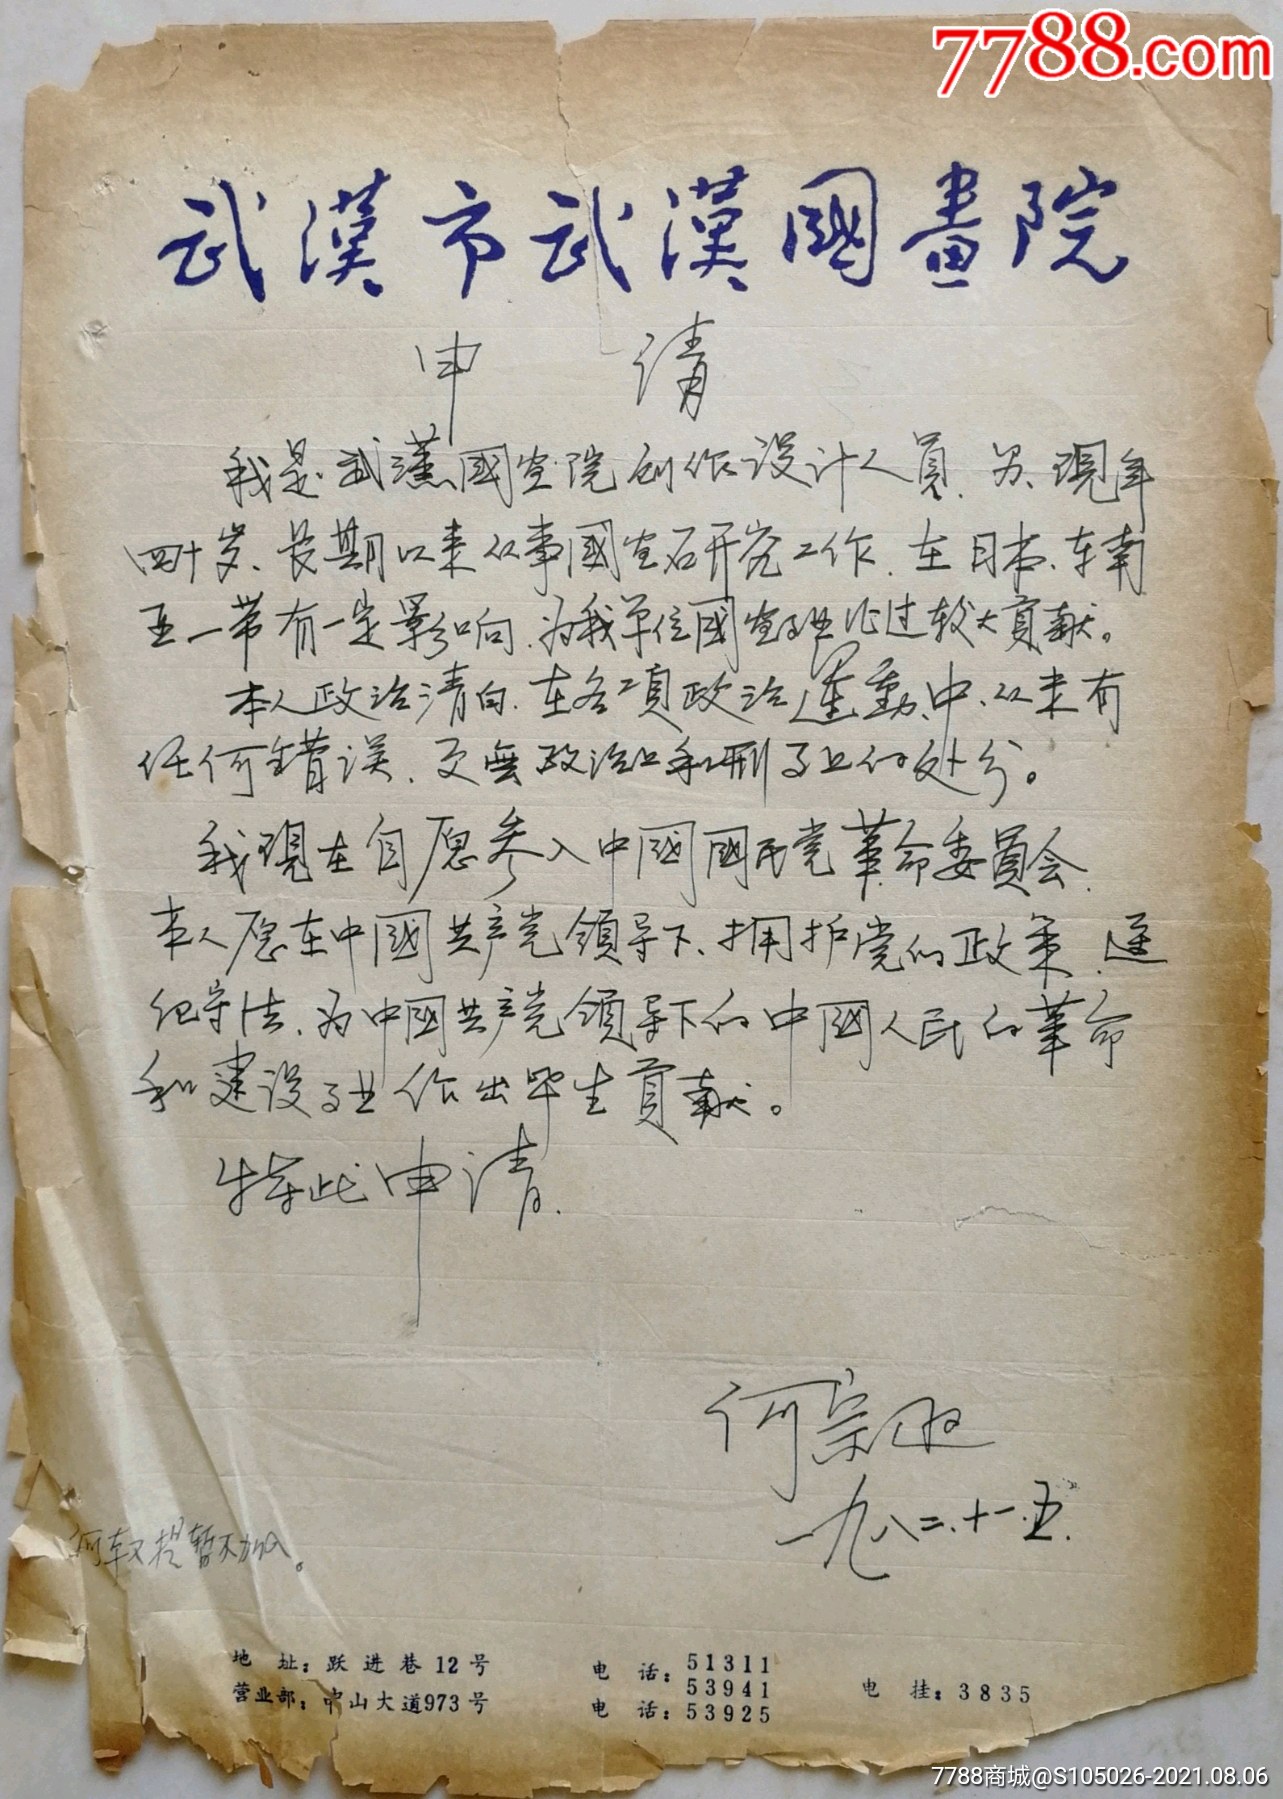 7788.com
武漢市武漢國畫院
申 请
我是武漢國画院创作设计人员、男、現年
四十岁、長期以来从事國画石研究工作、在日本、东南
亚一带有一定影响、为我单位國画事业作过较大貢献。
本人政治清白、在各项政治運動中、从未有
任何错误、更無政治上和刑事上的处分。
我現在自愿参入中國國民党革命委員会、
本人愿在中國共产党領导下、拥护党的政策、遵
纪守法、为中國共产党領导下的中國人民的革命
和建设事业作出毕生貢献。
特此申请.
何宗
一九八二.十一.五.
何 提暂不加入。
地 址：跃进巷12号
营业部：中山大道973号
电 话：51311
53941
电 话：53925
电 挂：3835
7788商城@S105026-2021.08.06